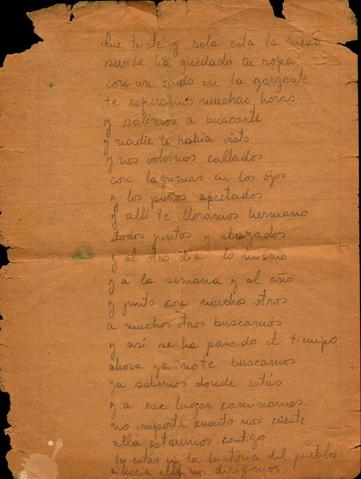 Que triste y sola está la mesa
servida ha quedado tu sopa
con un nudo en la garganta
te esperamos muchas horas
y salimos a buscarte
y nadie te había visto
y nos volvimos callados
con lágrimas en los ojos
y los puños apretados
y allí te lloramos hermano
todos juntos y abrazados
y al otro día lo mismo
y a la semana y al año
y junto con muchos otros
a muchos otros buscamos
y así se ha pasado el tiempo
ahora ya no te buscamos
ya sabemos donde estás
y a ese lugar caminamos.
no importa cuanto nos cueste
allá estaremos contigo
tu estás en la historia del pueblo
y hacia ella nos dirigimos.